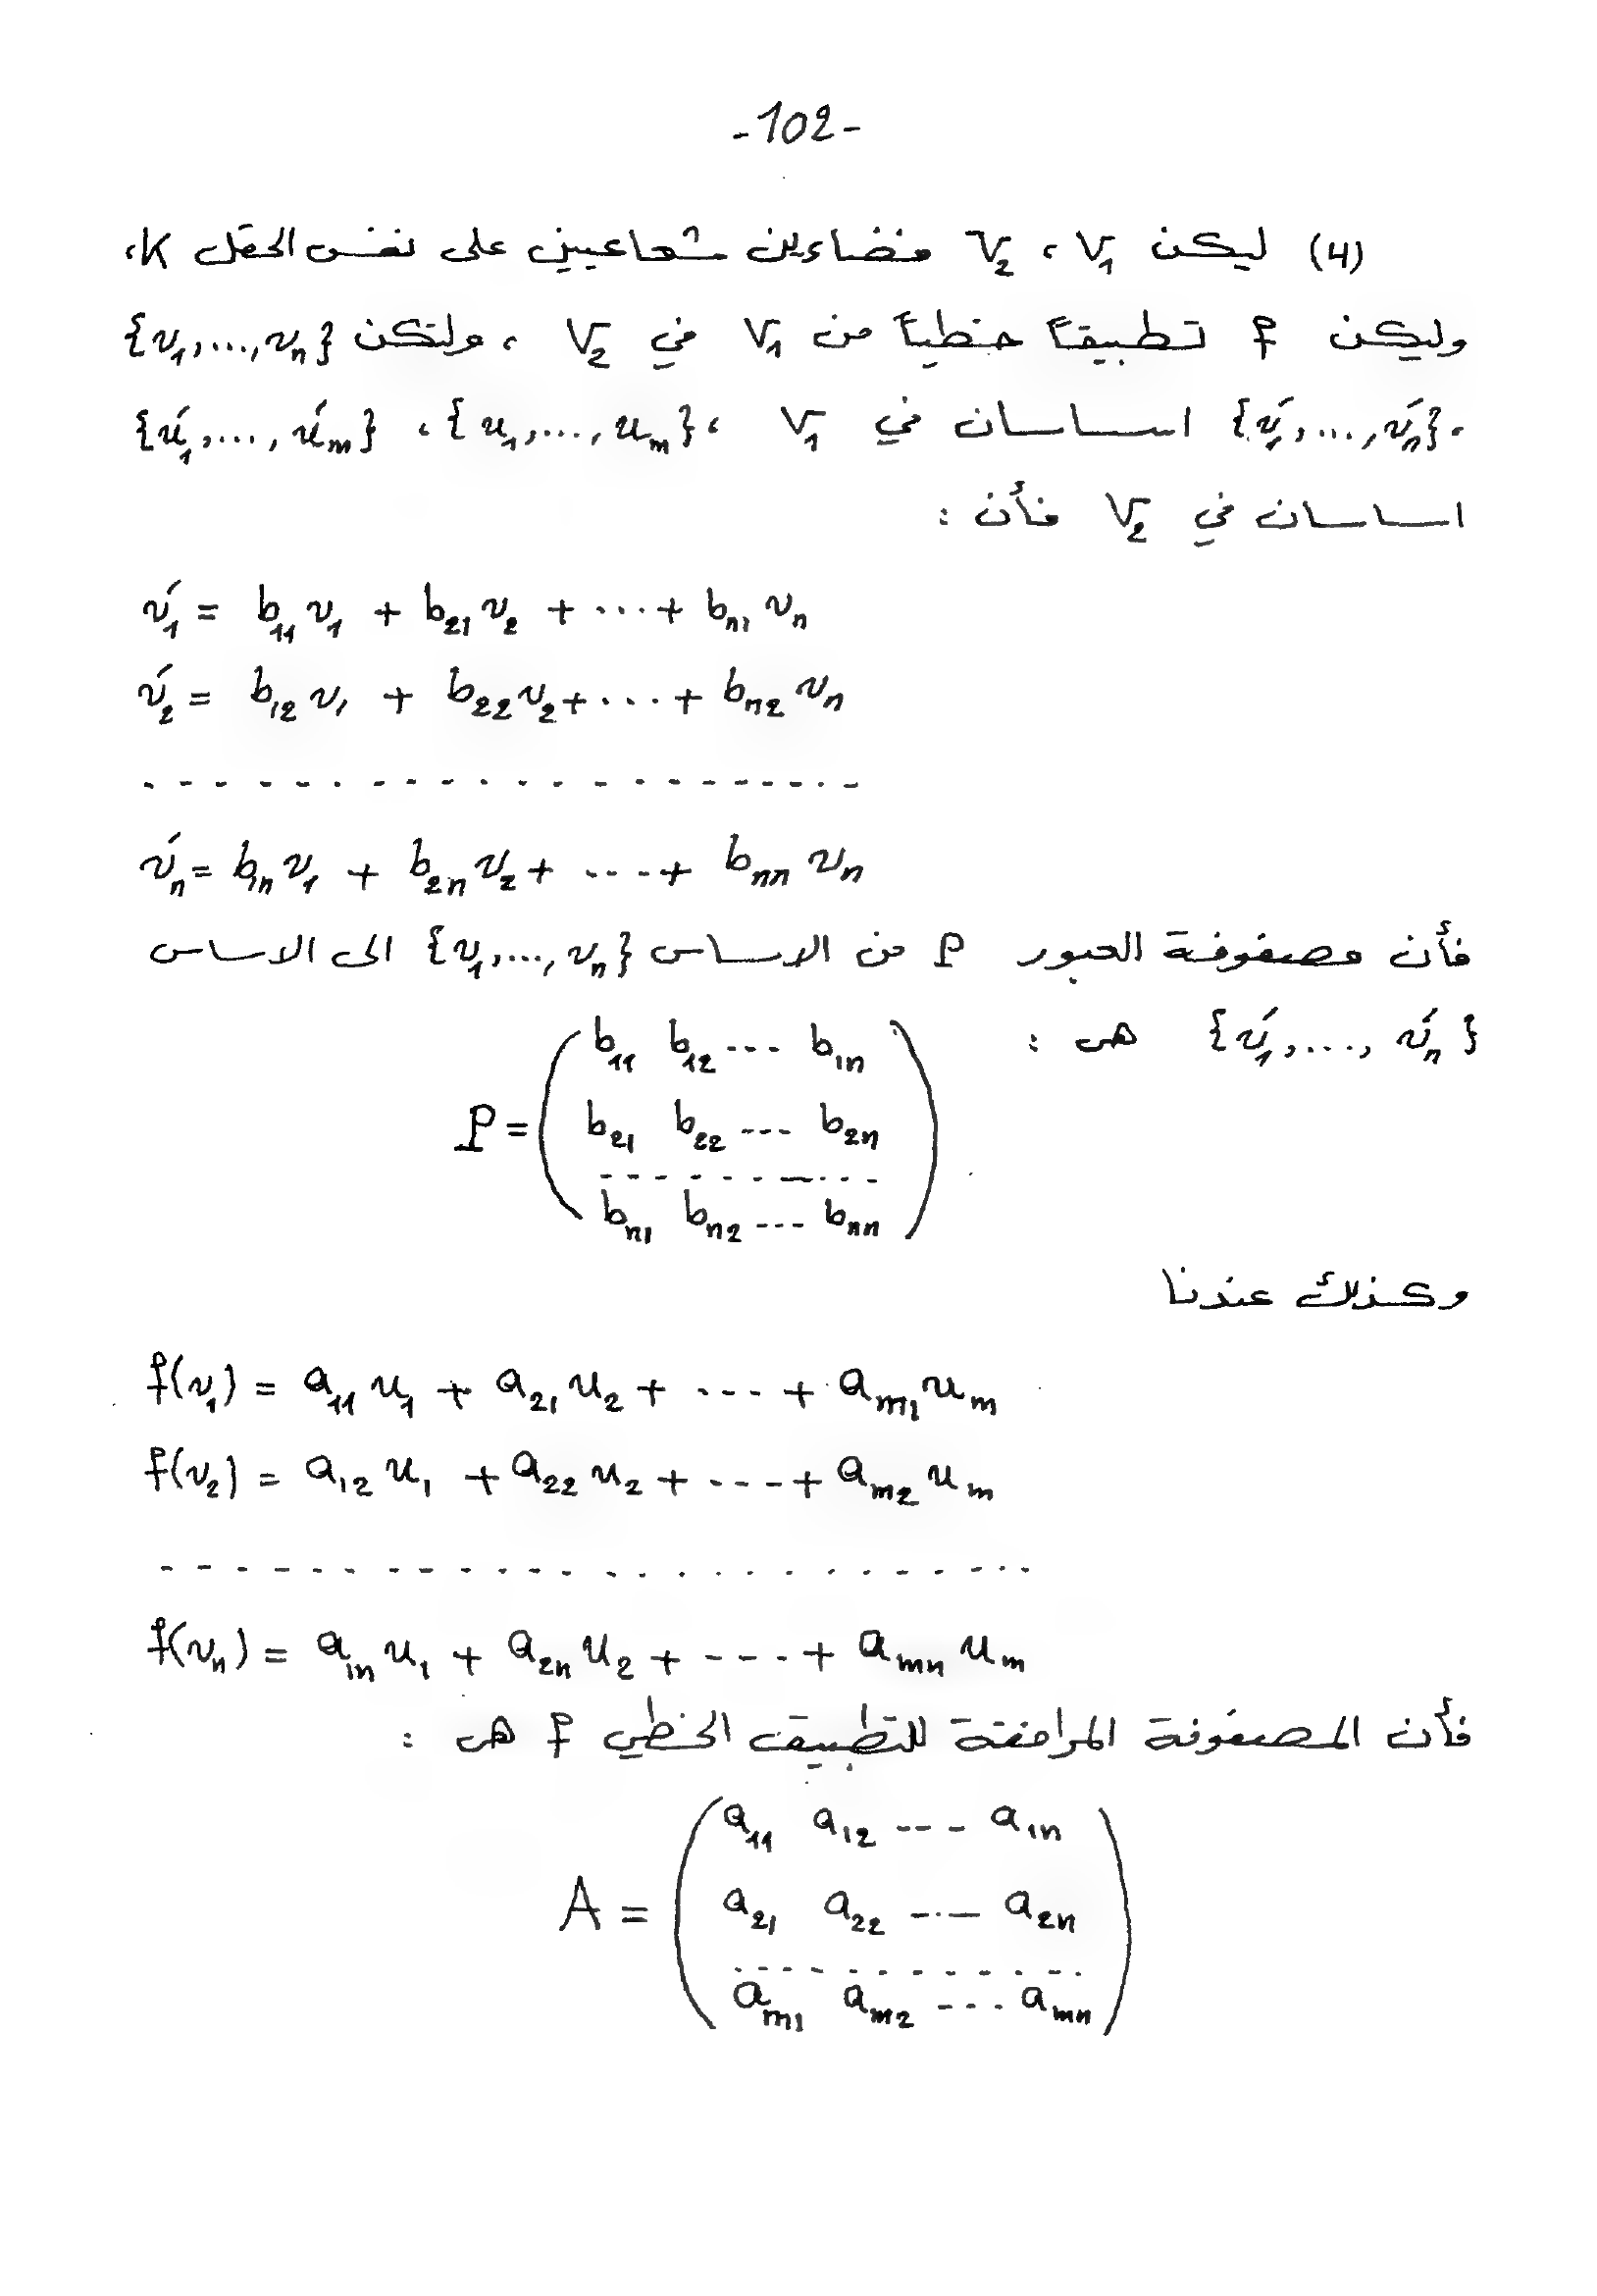 -102-
(4) ليكن V₁ ، V₂ فضاءين شعاعيين على نفس الحقل K،
وليكن f تطبيقاً خطياً من V₁ في V₂ ، ولتكن {v₁,...,vₙ}
،{v́₁,...,v́ₙ} اساسان في V₁ ،{u₁,...,uₘ} ، {ú₁,...,úₘ}
اساسان في V₂ فأن :
v́₁ = b₁₁v₁ + b₂₁v₂ + ... + bₙ₁vₙ
v́₂ = b₁₂v₁ + b₂₂v₂ + ... + bₙ₂vₙ
- - - - - - - - - - - - - - - - - - - -
v́ₙ = b₁ₙv₁ + b₂ₙv₂ + ---- + bₙₙvₙ
فأن مصفوفة العبور P من الاساس {v₁,...,vₙ} الى الاساس
{v́₁,...,v́ₙ} هى :
P = ( b₁₁ b₁₂ --- b₁ₙ
b₂₁ b₂₂ --- b₂ₙ
- - - - - - - - -
bₙ₁ bₙ₂ --- bₙₙ )
وكذلك عندنا
f(v₁) = a₁₁u₁ + a₂₁u₂ + ---- + aₘ₁uₘ
f(v₂) = a₁₂u₁ + a₂₂u₂ + ---- + aₘ₂uₘ
- - - - - - - - - - - - - - - - - - - - - - - -
f(vₙ) = a₁ₙu₁ + a₂ₙu₂ + ---- + aₘₙuₘ
فأن المصفوفة المرافقة للتطبيق الخطي f هى :
A = ( a₁₁ a₁₂ --- a₁ₙ
a₂₁ a₂₂ --- a₂ₙ
- - - - - - - - - - -
aₘ₁ aₘ₂ --- aₘₙ )